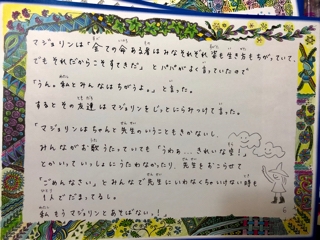 マジョリンは「全ての命ある者はみなそれぞれ姿も生き方もちがっていて、
でもそれだからこそすてきだ」とパパがよく言っていたので
「うん。私とみんなはちがうよ。」と言った。
するとその友達はマジョリンをじっとにらみつけて言った。
「マジョリンはちゃんと先生のいうこともきかないし、
みんながお歌うたっていても「うわぁ…きれいな空！」
とかいっていっしょにうたわなかったり、先生をおこらせて
「ごめんなさい」とみんなで先生にいわなくちゃいけない時も
1人でだまってるし。
私もうマジョリンとあそばないっ！」